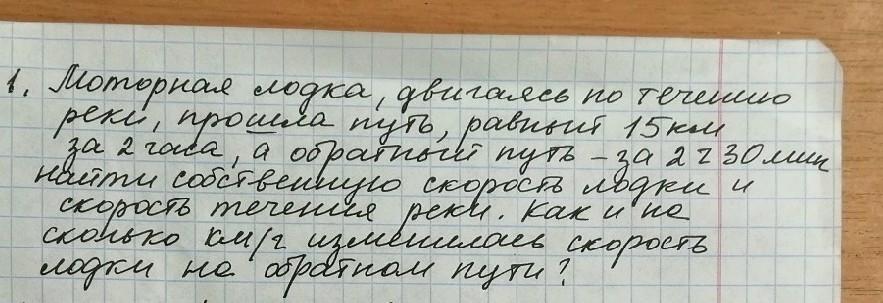 1. Моторная лодка, двигаясь по течению
реки, прошла путь, равный 15 км
за 2 часа, а обратный путь – за 2 ч 30 мин
найти собственную скорость лодки и
скорость течения реки. Как и на
сколько км/ч изменилась скорость
лодки на обратном пути?